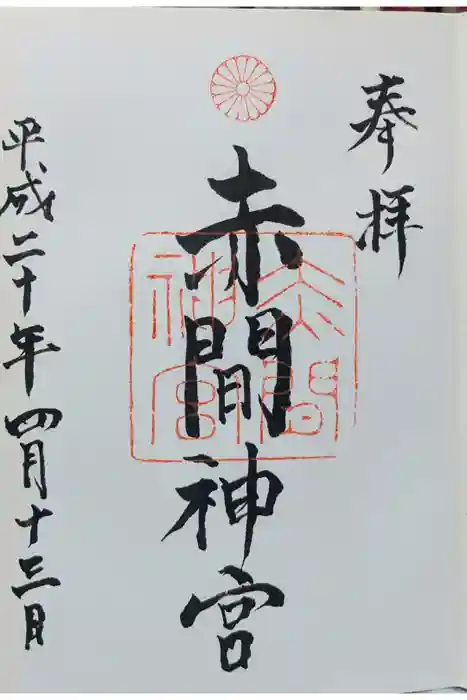 奉拝
赤間神宮
赤間
神宮
平成二十年四月十三日